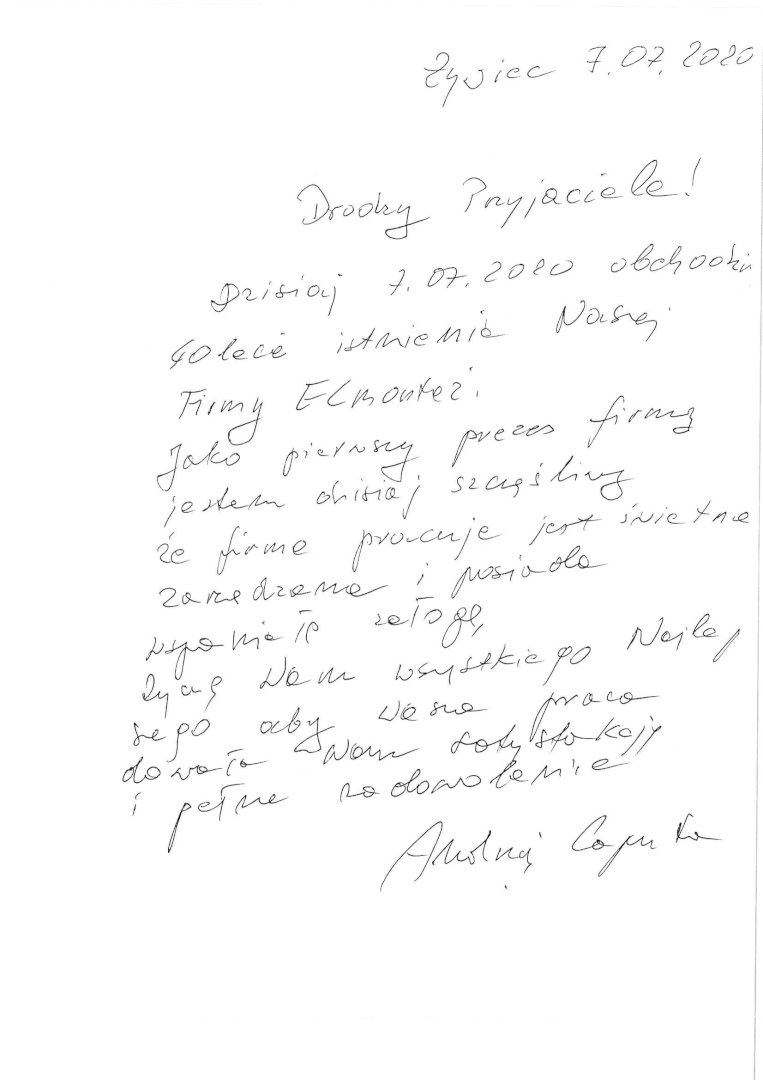 Żywiec 7.07.2020
Drodzy Przyjaciele!
Dzisiaj 7.07.2020 obchodzi
40 lecie istnienia Naszej
Firmy ELmontaż.
Jako pierwszy prezes firmy
jestem dzisiaj szczęśliwy
że firma pracuje jest świetnie
zarządzana i posiada
wspaniałą załogę,
Życzę Wam wszystkiego Najlep
szego aby Wasza praca
dawała Wam satysfakcję
i pełne zadowolenie
Andrzej Caputa